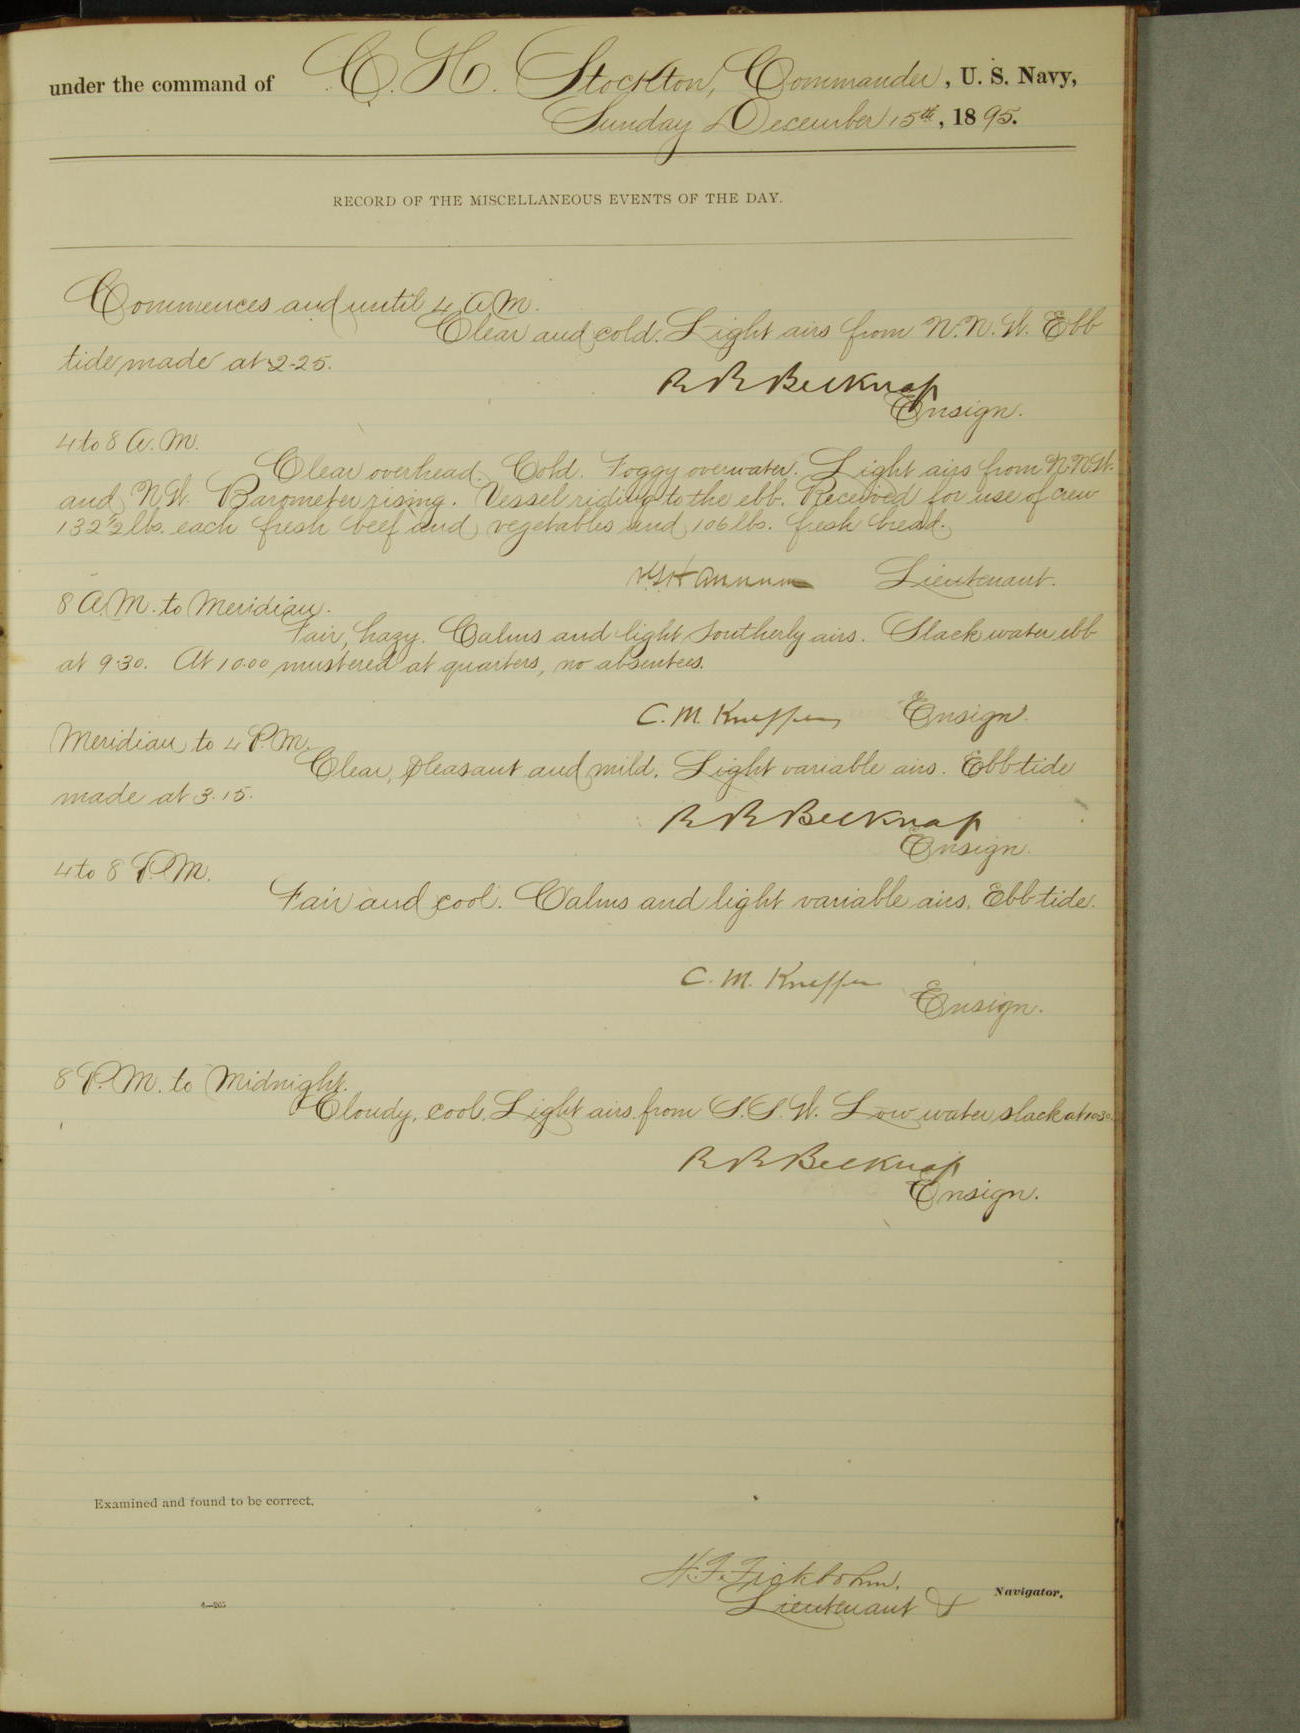 under the command of C. H. Stockton, Commander, U. S. Navy,
Sunday December 15th, 1895.
RECORD OF THE MISCELLANEOUS EVENTS OF THE DAY.
Commences and until 4 A.M.
Clear and cold. Light airs from N.N.W. Ebb
tide made at 2-25.
R R Belknap
Ensign.
4 to 8 A.M.
Clear overhead. Cold. Foggy over water. Light airs from N.N.W.
and N.W. Barometer rising. Vessel riding to the ebb. Received for use of crew
132 1/2 lbs. each fresh beef and vegetables and 106 lbs. fresh bread.
Lieutenant.
8 A.M. to Meridian.
Fair, hazy. Calms and light Southerly airs. Slack water ebb
at 9.30. At 10.00 mustered at quarters, no absentees.
C. M. Knepper Ensign.
Meridian to 4 P.M.
Clear, pleasant and mild. Light variable airs. Ebb tide
made at 3.15.
R R Belknap
Ensign.
4 to 8 P.M.
Fair and cool. Calms and light variable airs. Ebb tide.
C. M. Knepper
Ensign.
8 P.M. to Midnight.
Cloudy, cool. Light airs from S.S.W. Low water slack at 10.30.
R R Belknap
Ensign.
Examined and found to be correct.
H. F. Fickbohm.
Lieutenant & Navigator.